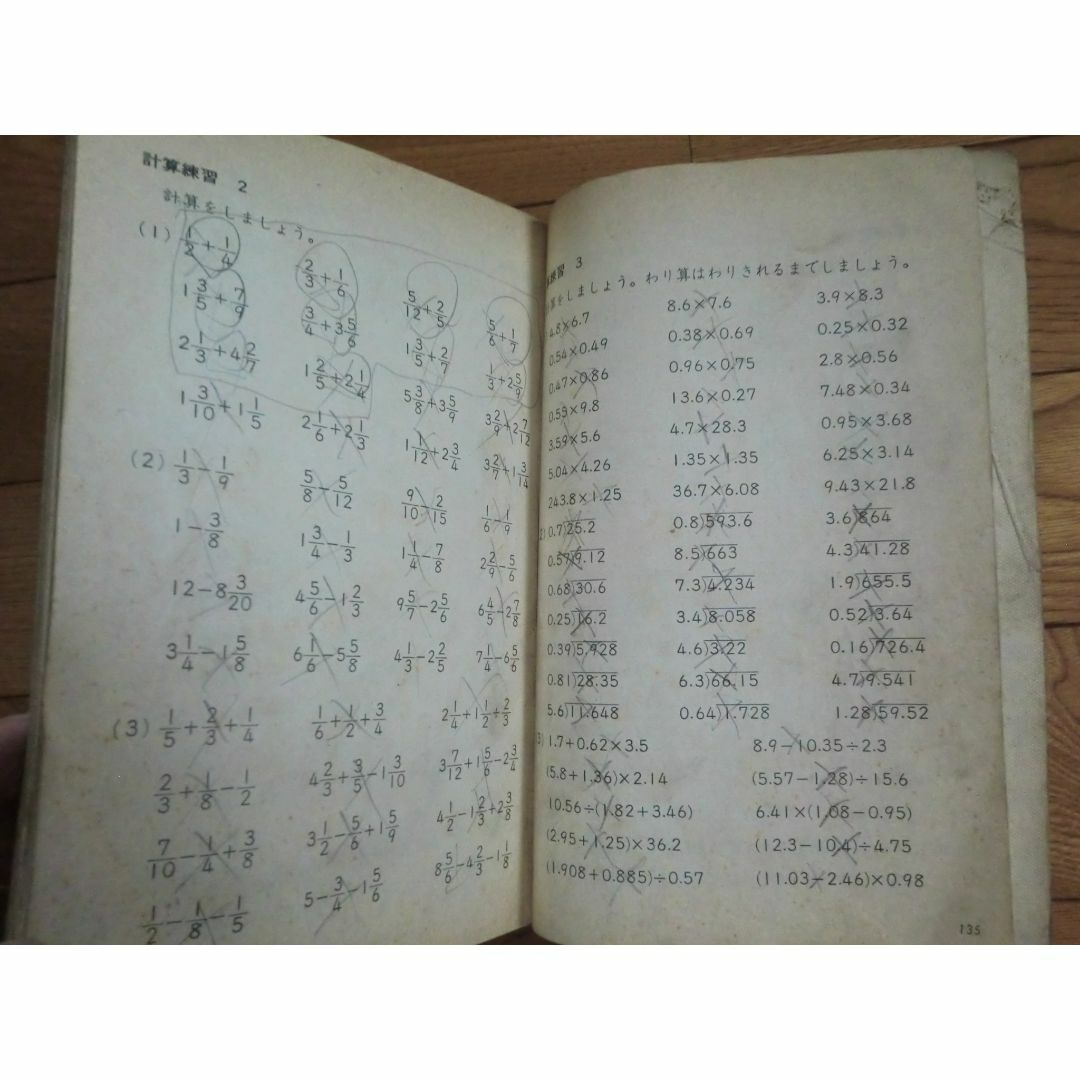 計算練習 2
計算をしましょう。
(1) 1/2+1/4 2/3+1/6 5/12+2/5 5/6+1/7
1 3/5+7/9 3/4+3 5/6 1 3/5+2/7 1/3+2 5/9
2 1/3+4 2/7 1 2/5+2 1/4 5 3/8+3 5/9 3 2/9+2 7/12
1 3/10+1 1/5 2 1/6+2 1/3 1 1/12+2 3/4 3 2/7+1 3/14
(2) 1/3-1/9 5/8-5/12 9/10-2/15 1/6-1/9
1-3/8 1 3/4-1/3 1 1/4-7/8 2 2/9-5/6
12-8 3/20 4 5/6-1 2/3 9 5/7-2 5/6 6 4/5-2 7/8
3 1/4-1 5/8 6 1/6-5 5/8 4 1/3-2 2/5 7 1/4-6 5/6
(3) 1/5+2/3+1/4 1/6+1/2+3/4 2 1/4+1 1/2+2/3
2/3+1/8-1/2 4 2/3+3/5-1 3/10 3 7/12+1 5/6-2 3/4
7/10-1/4+3/8 3 1/2-5/6+1 5/9 4 1/2-1 2/3+2 3/8
1/2-1/8-1/5 5-3/4-1 5/6 8 5/6-4 2/3-1 1/8
練習 3
算をしましょう。わり算はわりきれるまでしましょう。
4.8×6.7 8.6×7.6 3.9×8.3
0.54×0.49 0.38×0.69 0.25×0.32
0.47×0.86 0.96×0.75 2.8×0.56
0.55×9.8 13.6×0.27 7.48×0.34
3.59×5.6 4.7×28.3 0.95×3.68
5.04×4.26 1.35×1.35 6.25×3.14
243.8×1.25 36.7×6.08 9.43×21.8
2) 0.7)25.2 0.8)593.6 3.6)864
0.57)9.12 8.5)663 4.3)41.28
0.68)30.6 7.3)4.234 1.9)655.5
0.25)16.2 3.4)8.058 0.52)3.64
0.39)5.928 4.6)3.22 0.16)726.4
0.81)28.35 6.3)66.15 4.7)9.541
5.6)11.648 0.64)1.728 1.28)59.52
3) 1.7+0.62×3.5 8.9-10.35÷2.3
(5.8+1.36)×2.14 (5.57-1.28)÷15.6
10.56÷(1.82+3.46) 6.41×(1.08-0.95)
(2.95+1.25)×36.2 (12.3-10.4)÷4.75
(1.908+0.885)÷0.57 (11.03-2.46)×0.98
135